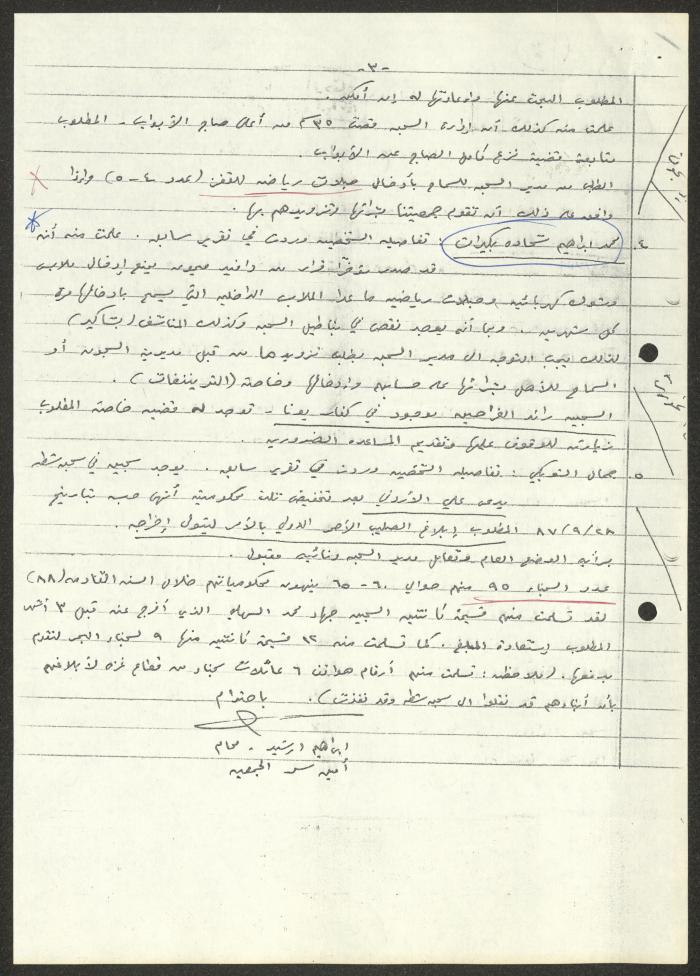 -٣-
المطلوب البحث عنها واعادتها له إن أمكن.
علمت منه كذلك أن ادارة السجن قصت ٣٥سم من أعلى صاج الأبواب. المطلوب
متابعة قضية نزع كامل الصاج عن الأبواب.
الطلب من مدير السجن للسماح بأدخال حبلات رياضه للقفز (عدد ٤-٥) واذا
وافق على ذلك أن تقوم جمعيتنا بشرائها وتزويدهم بها.
٤. محمد ابراهيم شحاده بكيرات: تفاصيله الشخصيه وردت في تقرير سابق. علمت منه أنه
قد صدر مؤخراً قرار من دافيد ميمون يمنع إدخال ملابس
وشوك كهربائيه وحبلات رياضيه ما عدا الملابس الداخليه التي يسمح بادخالها مرة
كل شهرين. وبما أنه يوجد نقص في بناطيل السجن وكذلك المناشف (بشاكير)
لذلك يجب التوجه الى مدير السجن بطلب تزويدها من قبل مديرية السجون أو
السماح للأهل بشرائها على حسابهم وادخالها وخاصة (التريننغات).
السجين رائد القراحين موجود في كفار يونا - توجد له قضيه خاصه المطلوب
زيارته للوقوف عليها وتقديم المساعده الضروريه.
٥. جمال النوبكي: تفاصيله الشخصيه وردت في تقرير سابق. يوجد سجين في سجن شطه
يدعى علي الأردني بعد تخفيض ثلث محكوميته أنهى حبسه بتاريخ
٨٧/٩/٢٨ المطلوب إبلاغ الصليب الأحمر الدولي بالأمر ليتولى إخراجه.
برأيه الوضع العام وتعامل مدير السجن ونائبه مقبول.
عدد السجناء ٩٥ منهم حوالي ٦٠-٦٥ ينهون محكومياتهم خلال السنه القادمه (٨٨)
لقد تسلمت منهم قسيمة كانتين السجين جهاد محمد السهلي الذي أفرج عنه قبل ٣ أشهر
المطلوب إستعادة المبلغ. كما تسلمت منه ١٢ قسيمة كانتين منها ٩ لسجناء البحر لنقوم
بدفعها. (ملاحظه: تسلمت منهم أرقام هواتف ٦ عائلات سجناء من قطاع غزه لأبلاغهم
بأن أبناءهم قد نقلوا الى سجن شطه وقد نفذت). باحترام
ابراهيم ارشيد - محام
أمين سر الجمعيه